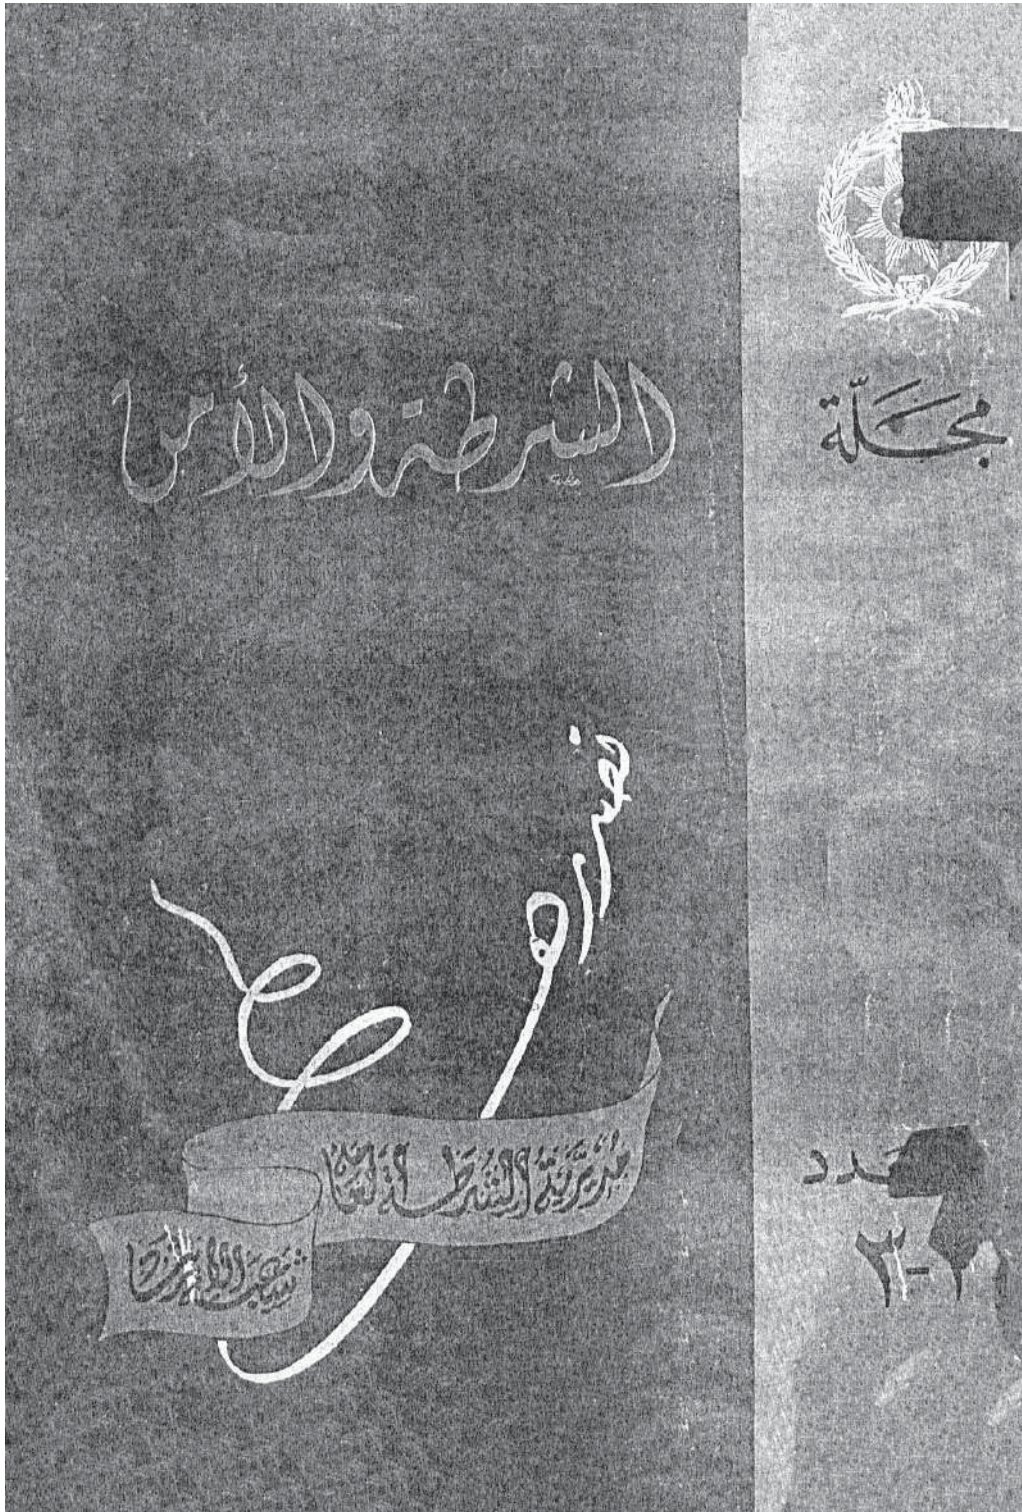 مجَلّة
الشرطة والأمن
تصدرها
مديرية الشرطة العامة
شعبة
دد